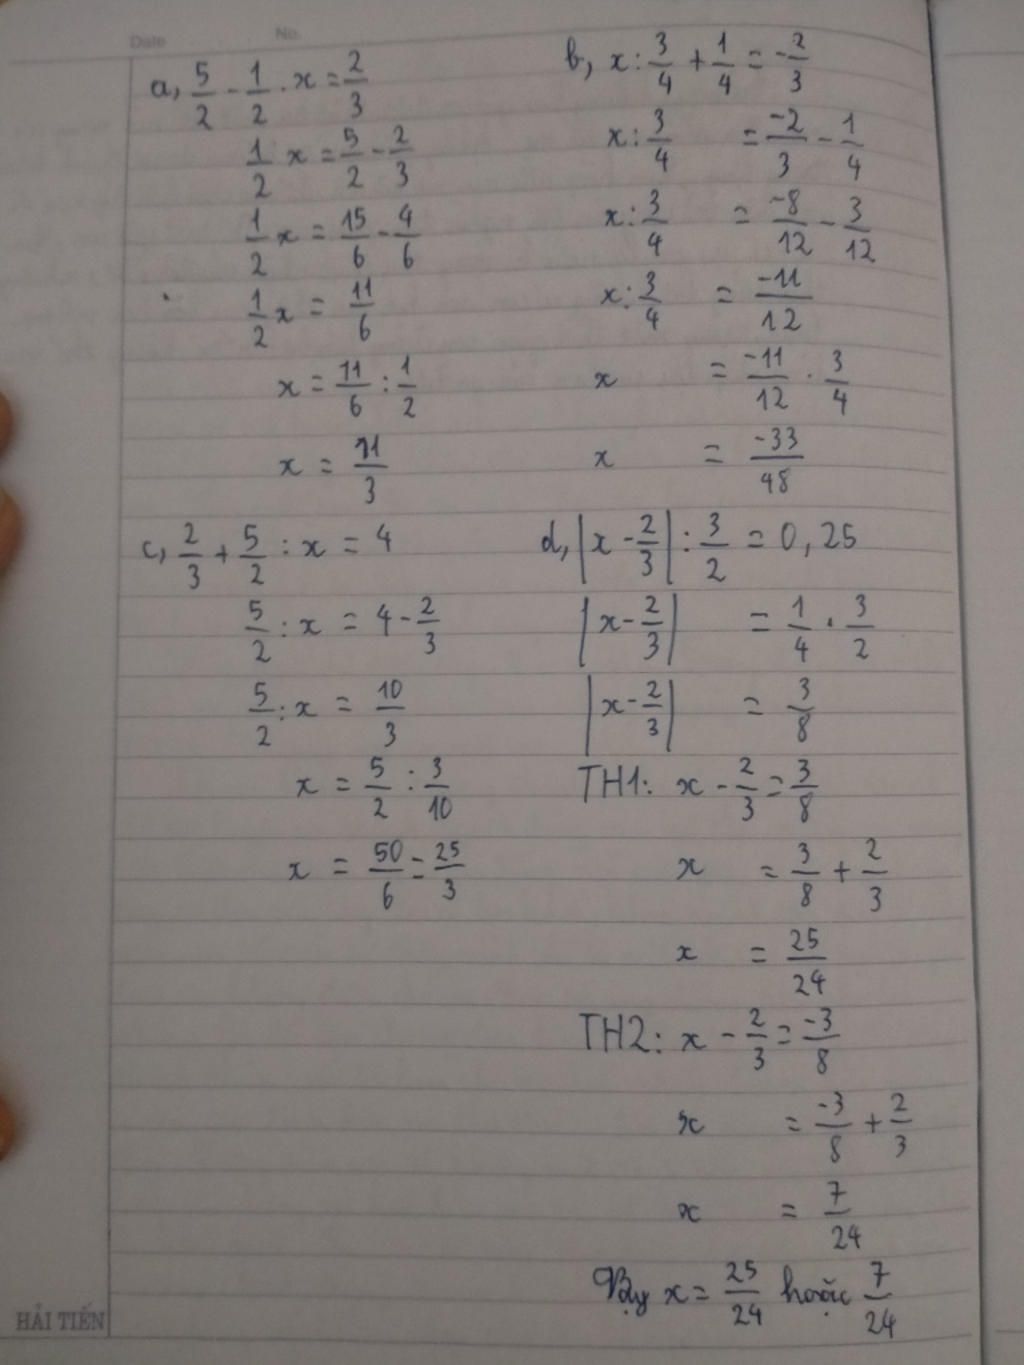 Date No.
a, 5/2 - 1/2 . x = 2/3
1/2 x = 5/2 - 2/3
1/2 x = 15/6 - 4/6
1/2 x = 11/6
x = 11/6 : 1/2
x = 11/3
b, x : 3/4 + 1/4 = -2/3
x : 3/4 = -2/3 - 1/4
x : 3/4 = -8/12 - 3/12
x : 3/4 = -11/12
x = -11/12 . 3/4
x = -33/48
c, 2/3 + 5/2 : x = 4
5/2 : x = 4 - 2/3
5/2 : x = 10/3
x = 5/2 : 3/10
x = 50/6 = 25/3
d, |x - 2/3| : 3/2 = 0,25
|x - 2/3| = 1/4 . 3/2
|x - 2/3| = 3/8
TH1: x - 2/3 = 3/8
x = 3/8 + 2/3
x = 25/24
TH2: x - 2/3 = -3/8
x = -3/8 + 2/3
x = 7/24
Vậy x = 25/24 hoặc 7/24
HẢI TIẾN